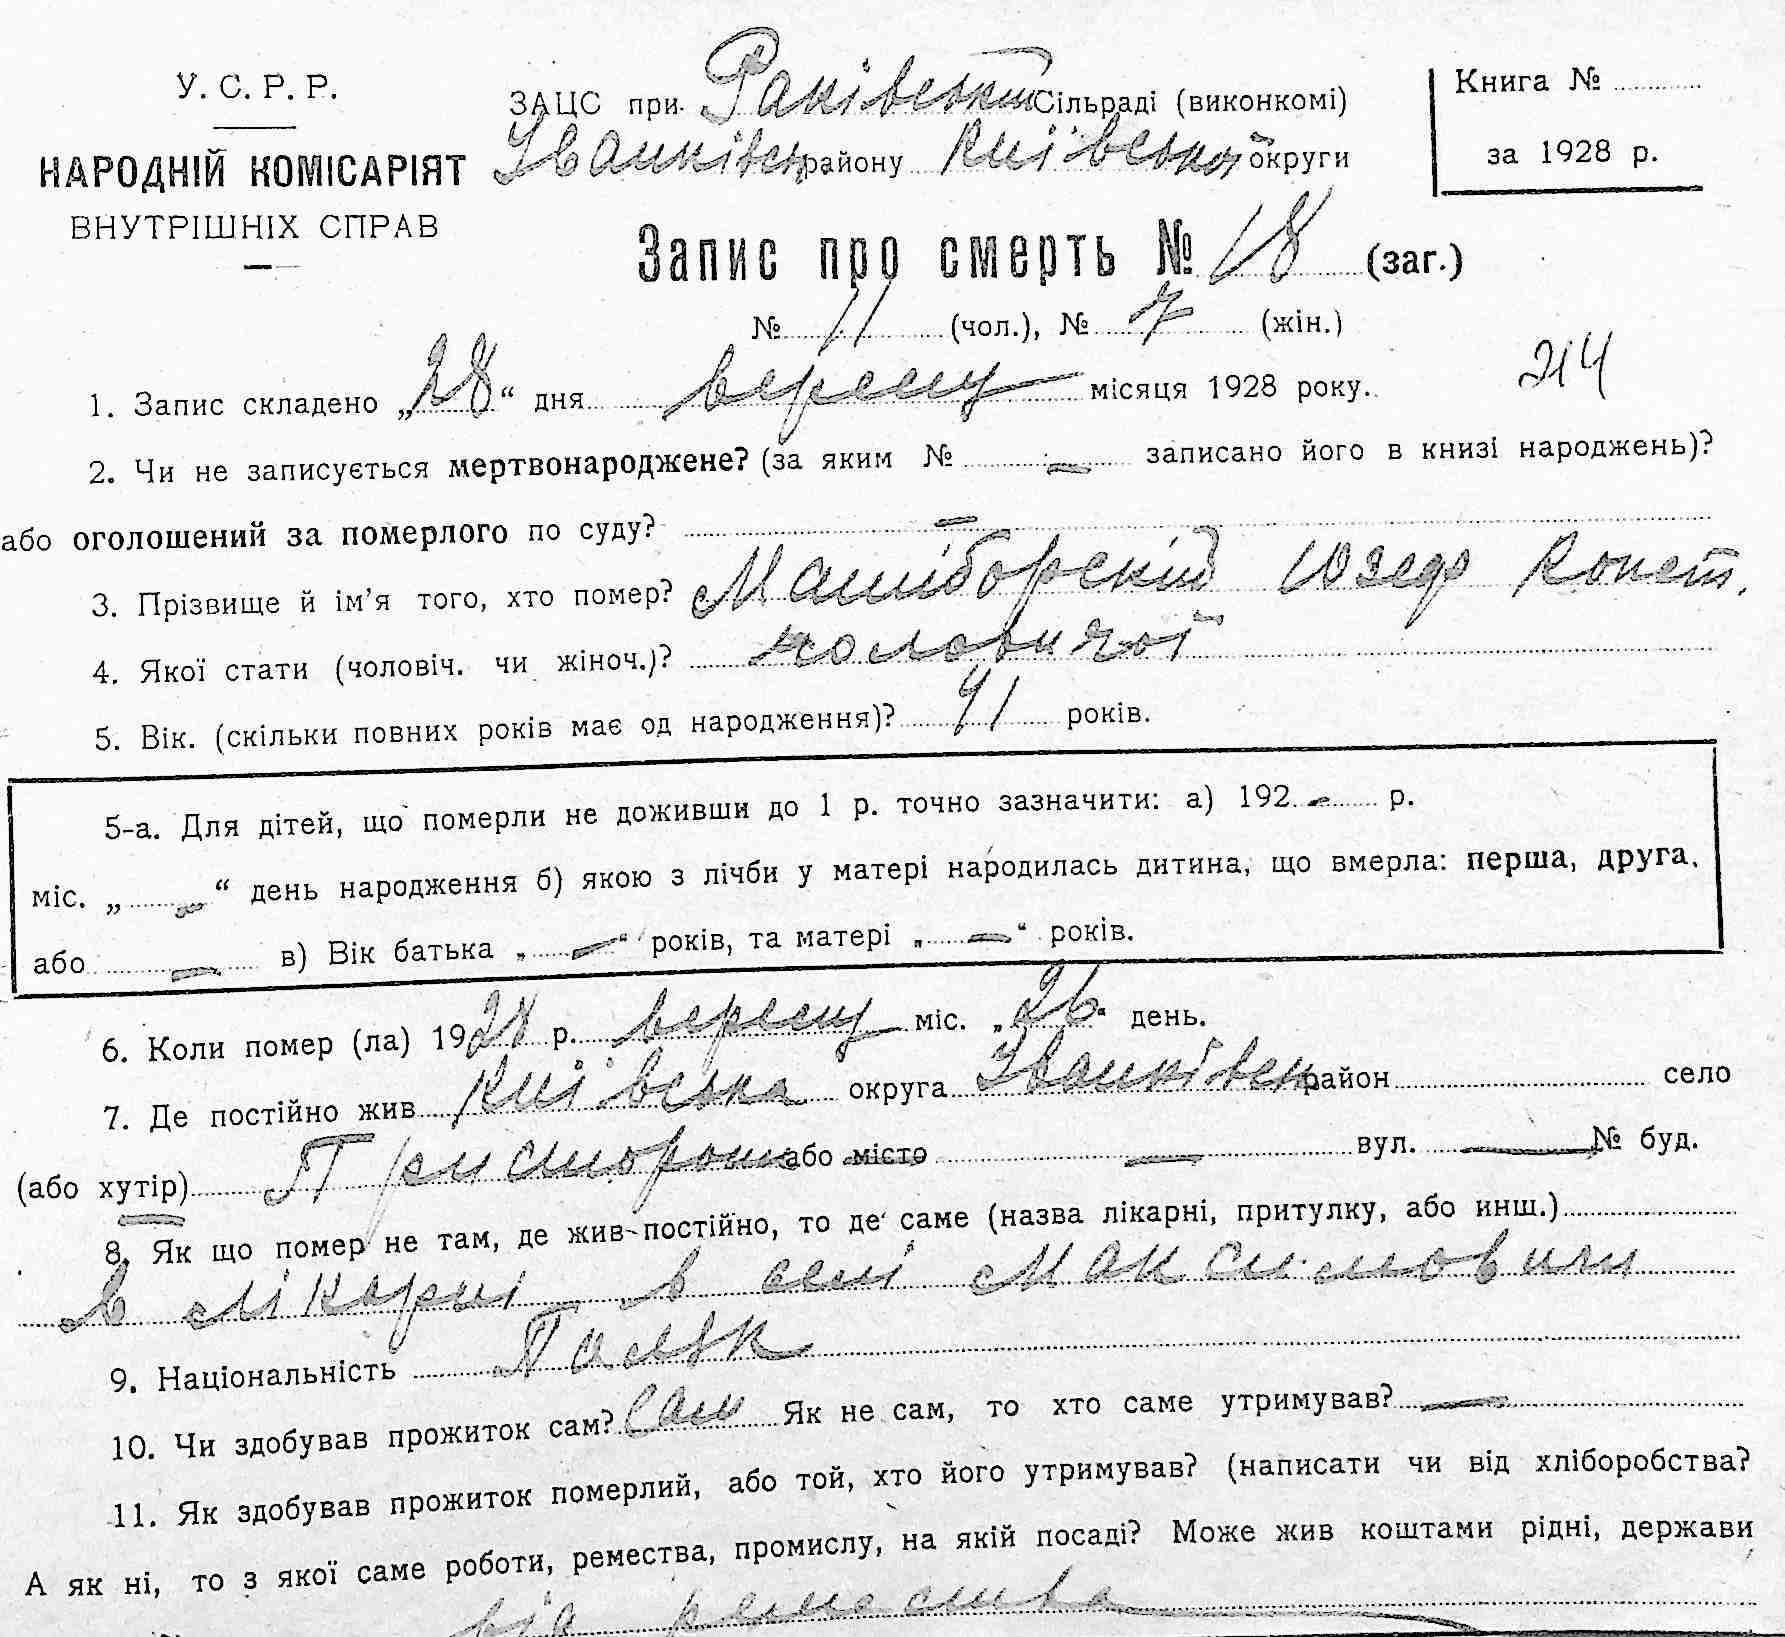 У. С. Р. Р.
НАРОДНІЙ КОМІСАРІЯТ
ВНУТРІШНІХ СПРАВ
ЗАЦС при Раківській Сільраді (виконкомі)
Іванківськ району Київської округи
Книга №
за 1928 р.
Запис про смерть № 18 (заг.)
№ 11 (чол.), № 7 (жін.)
1. Запис складено „28“ дня вересня місяця 1928 року.
2. Чи не записується мертвонароджене? (за яким № — записано його в книзі народжень)?
або оголошений за померлого по суду? —
3. Прізвище й ім’я того, хто помер? Юзеф Конст.
4. Якої стати (чоловіч. чи жіноч.)? чоловичої
5. Вік. (скільки повних років має од народження)? років.
5-а. Для дітей, що померли не доживши до 1 р. точно зазначити: а) 192 — р.
міс. „ — “ день народження б) якою з лічби у матері народилась дитина, що вмерла: перша, друга,
або — в) Вік батька „ — “ років, та матері „ — “ років.
6. Коли помер (ла) 1928 р. вересня міс. „26“ день.
7. Де постійно жив Київська округа Іванківськ район село
(або хутір) або місто — вул. — № буд.
8. Як що помер не там, де жив постійно, то де саме (назва лікарні, притулку, або инш.)
в лікарні в селі Максимовичи
9. Національність Поляк
10. Чи здобував прожиток сам? Сам Як не сам, то хто саме утримував? —
11. Як здобував прожиток померлий, або той, хто його утримував? (написати чи від хліборобства?
А як ні, то з якої саме роботи, ремества, промислу, на якій посаді? Може жив коштами рідні, держави
від ремества